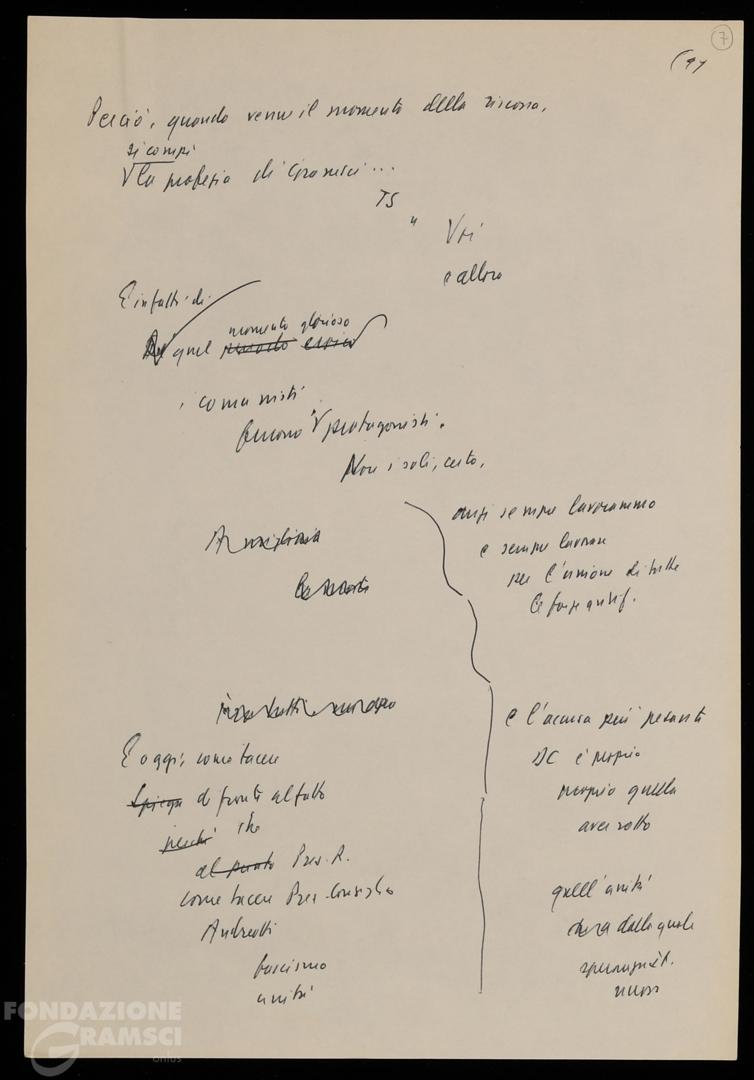 7
Perciò, quando venne il momento della riscossa,
si compì
la profezia di Gramsci...
TS
" Voi
e allora
E infatti di
quel momento glorioso
i comunisti
furono protagonisti.
Non i soli, certo,
anzi sempre lavorammo
e sempre
per l'unione di tutte
le forze antif.
e l'accusa più pesante
DC è proprio
proprio quella
aver rotto
quell'unità
dalla quale
E oggi, come tacere
Spiega di fronte al fatto
perché che
al punto Pres. R.
come tacere Pres. Consiglio
Andreotti
fascismo
unità
FONDAZIONE
GRAMSCI
onlus